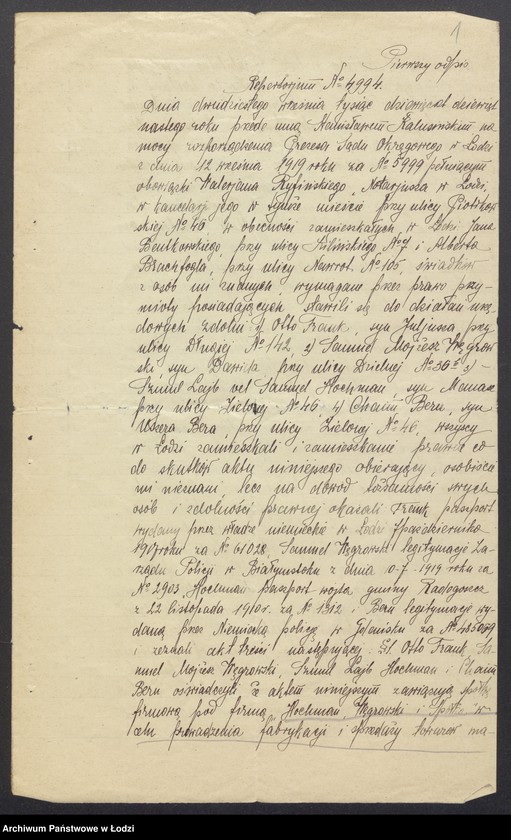 1
Pierwszy odpis
Repertorjum № 4994.
Dnia dwudziestego września tysiąc dziewięćset dziewięt
nastego roku przede mną Stanisławem Kalusińskim na
mocy rozporządzenia Prezesa Sądu Okręgowego w Łodzi
z dnia 12 września 1919 roku za № 5999 pełniącym
obowiązki Walerjana Rylińskiego, Notarjusza w Łodzi,
w kancelarji jego w tymże mieście przy ulicy Piotrkow
skiej № 46, w obecności zamieszkałych w Łodzi Jana
Bentkowskiego, przy ulicy № 7 i Alberta
przy ulicy Nawrot № 105, świadków
z osób mi znanych, wymagane przez prawo przy-
mioty posiadających, stawili się do działań urzę
dowych zdolni 1) Otto Frank, syn Juljusza, przy
ulicy Długiej № 142 2) Samuel Mojżesz Węgrow
ski, syn przy ulicy Dzielnej № 36 3) -
Szmul Lajb vel Samuel Hochman syn
przy ulicy Zielonej № 46 4) Chaim Bern, syn
Uszera Bera, przy ulicy Zielonej № 46, wszyscy
w Łodzi zamieszkali i zamieszkanie prawne co
do skutków aktu niniejszego obierający, osobiście
mi nieznani, lecz na dowód tożsamości swych
osób i zdolności prawnej okazali Frank paszport
wydany przez władze niemieckie w Łodzi października
za № 61028, Samuel Węgrowski legitymację Za-
rządu Policji w Białymstoku z dnia 10-7-1919 roku za
№ 2903, Hochman paszport wójta gminy Radogoszcz
z 22 listopada 1910 r. za № 1312 i Bern legitymację wy-
daną przez Niemiecką policję w Gdańsku za №
i zeznali akt treści następującej: §1 Otto Frank, Sa-
muel Mojżesz Węgrowski, Szmul Lajb Hochman i Chaim
Bern oświadczyli że aktem niniejszym zawiązują spółkę
firmową pod firmą "Hochman, Węgrowski i S-ka" w
celu prowadzenia fabrykacji i sprzedaży towarów ma-
Archiwum Państwowe w Łodzi